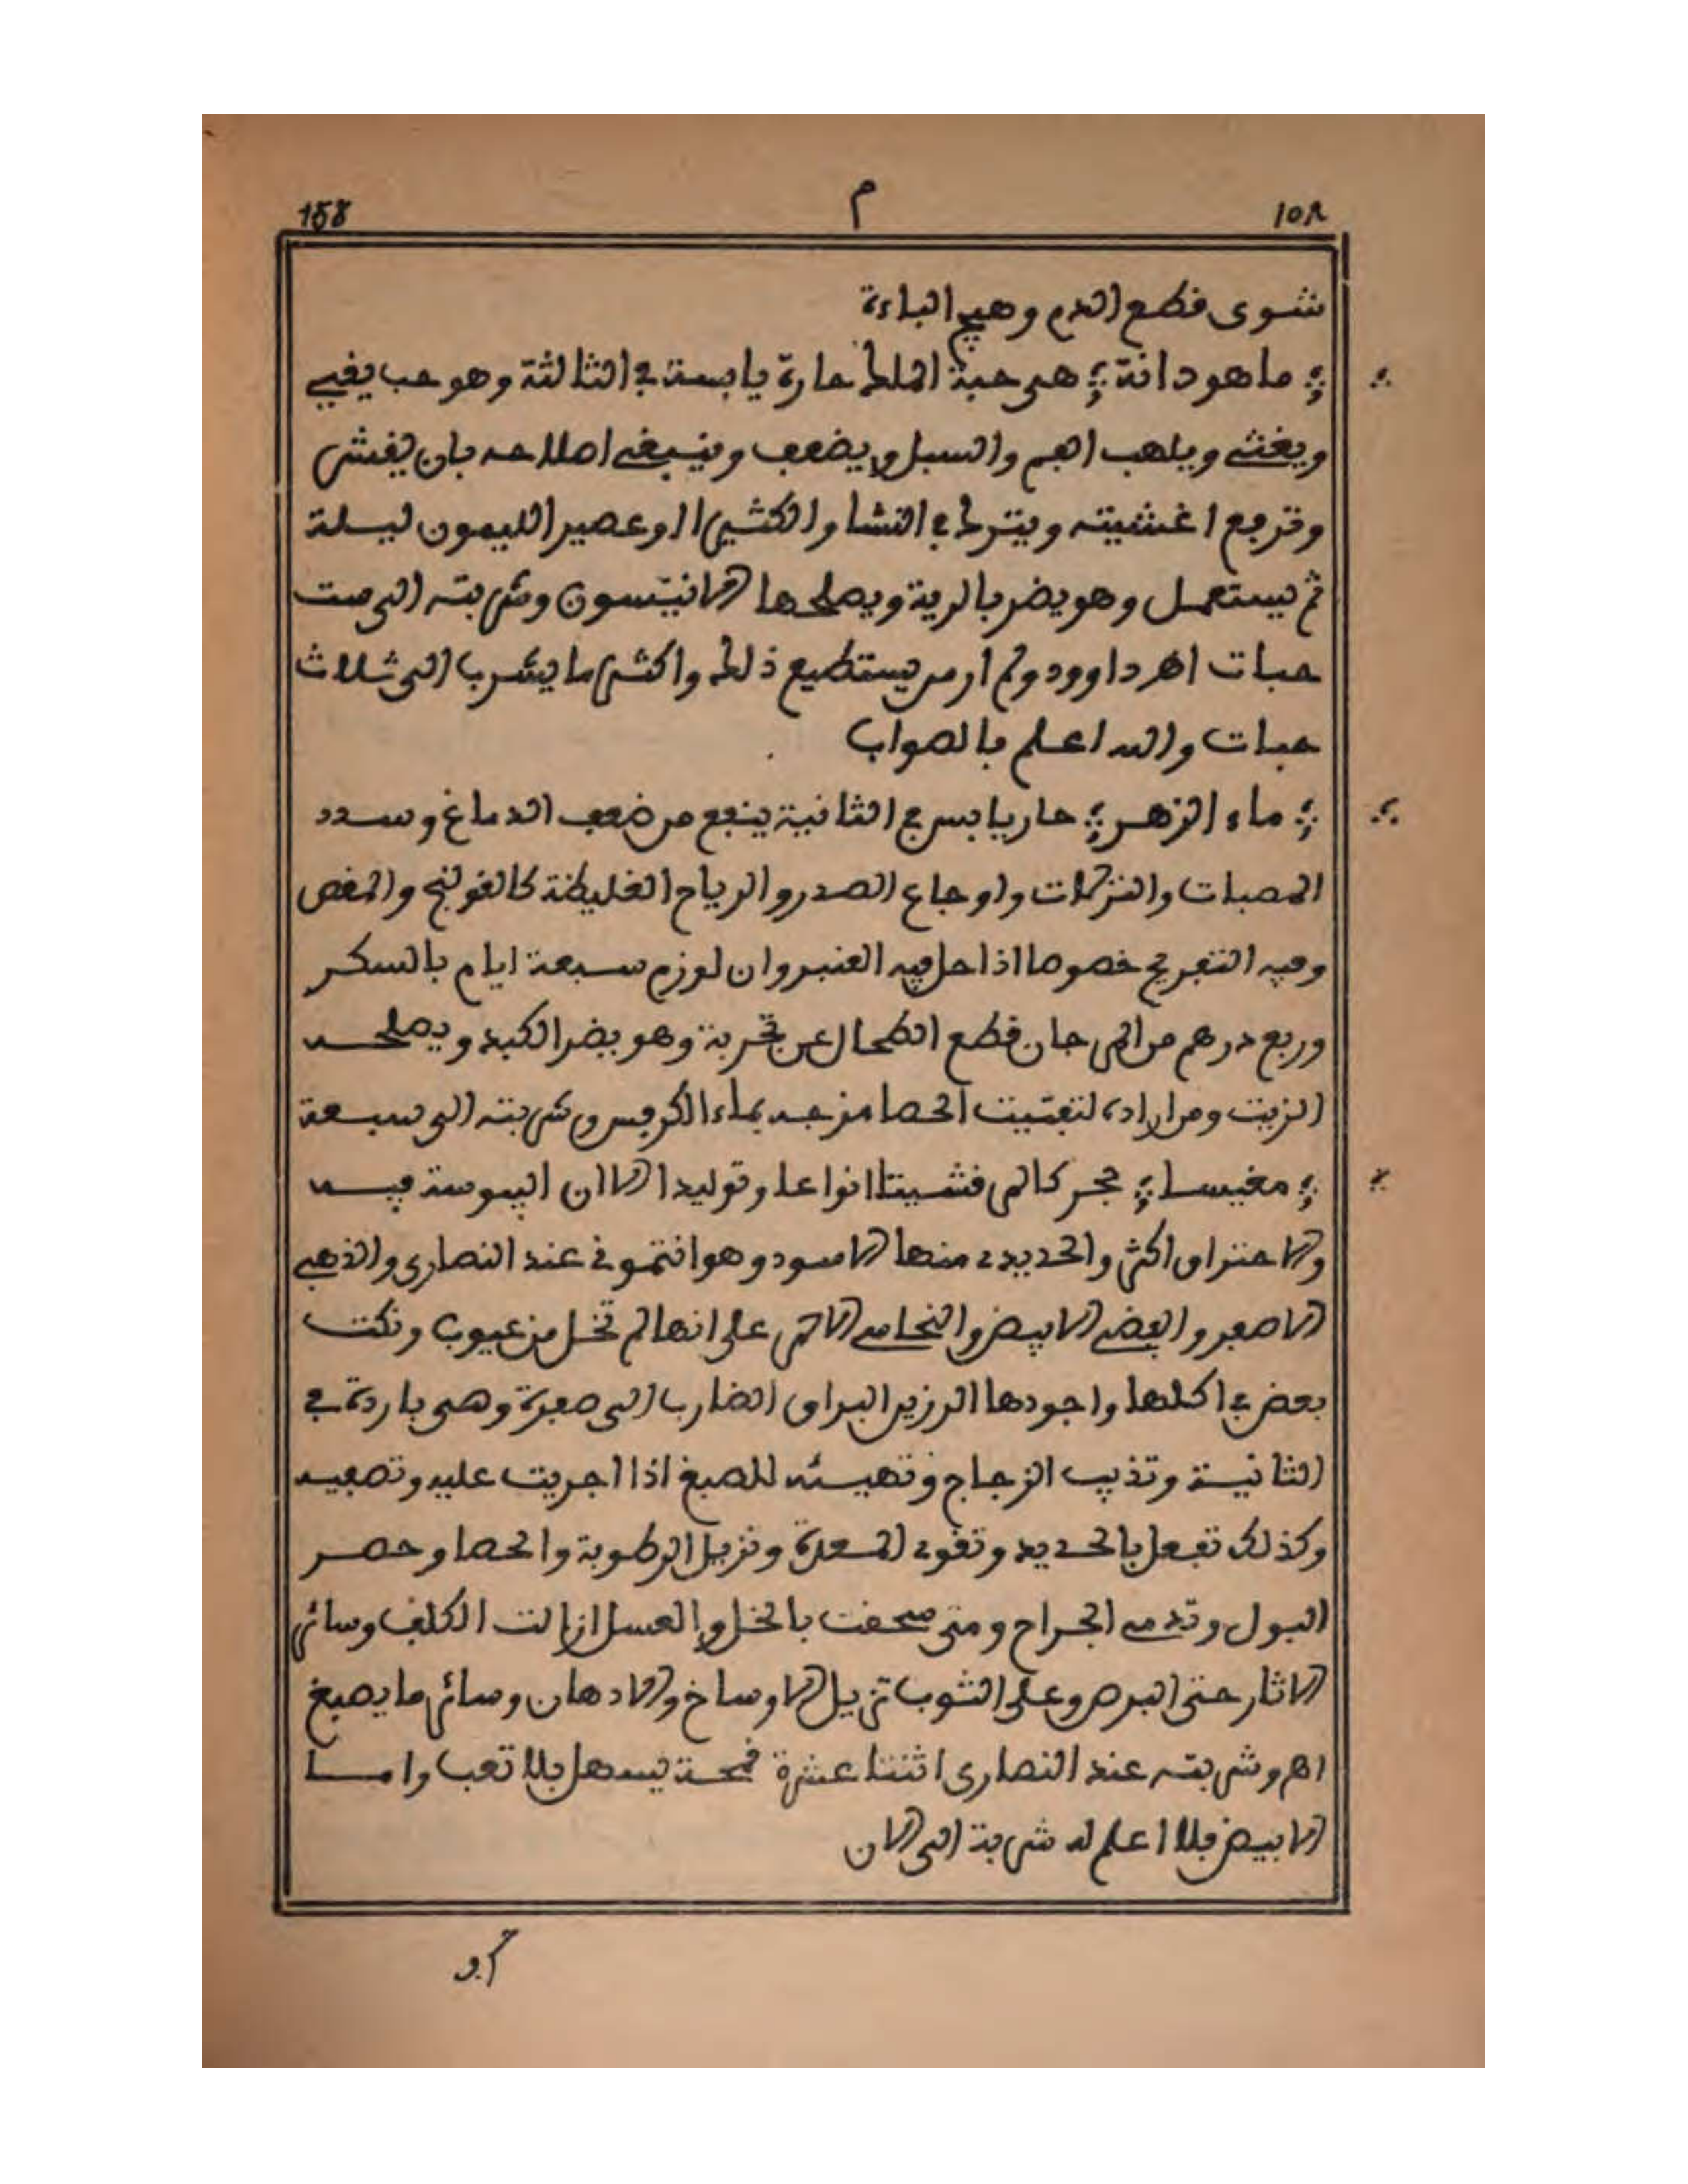 158 م ١٥٨
شوى قطع الدم وهيج الباءة
؞ ماهودانة ؞ هى حبة الملك حارة يابسة في الثالثة وهو حب يقيي
ويغثي ويلهب الفم والسبل ويضعف وينبغي اصلاحه بان يقشر
وترفع اغشيته ويترك في النشا والكثيرا او عصير الليمون ليلة
ثم يستعمل وهو يضر بالرية ويصلحها الانيسون وشربته الى ست
حبات اهـ داوود ولم ار من يستطيع ذلك واكثر ما يشرب الى ثلاث
حبات والله اعلم بالصواب
؞ ماء الزهر ؞ حار يابس في الثانية ينفع من ضعف الدماغ وسدد
المصبات والنزلات واوجاع الصدر والرياح الغليظة كالقولنج والمغص
وفيه التفريح خصوصا اذا حل فيه العنبر وان لوزم سبعة ايام بالسكر
وربع درهم من المرجان قطع الطحال عن تجربة وهو يضر الكبد ويصلحه
الزيت ومن اراده لتفتيت الحصا مزجه بماء الكرفس وشربته الى سبعة
؞ مغنيسا ؞ حجر كالمرقشيتا انواعا وتوليدا الا ان اليبوسة فيه
والاحتراق اكثر والحديدي منها الاسود وهو انتموني عند النصارى والذهبي
الاصفر والفضي الابيض والنحاسي الاحمر على انها لم تخل من عيوب ونكت
بعض في اكلها واجودها الرزين البراق الضارب الى صفرة وهى باردة في
الثانية وتذيب الزجاج وتهيئه للصبغ اذا اجريت عليه وتصفيه
وكذلك تفعل بالحديد وتقوي المعدة وتزيل الرطوبة والحصا وحصر
البول وتدمي الجراح ومتى سحقت بالخل والعسل ازالت الكلف وسائر
الاثار حتى البرص وعلى الثوب تزيل الاوساخ والادهان وسائر ما يصبغ
اهـ وشربته عند النصارى اثنتا عشرة قمحة يسهل بلا تعب واما
الابيض فلا اعلم له شربة الى الان